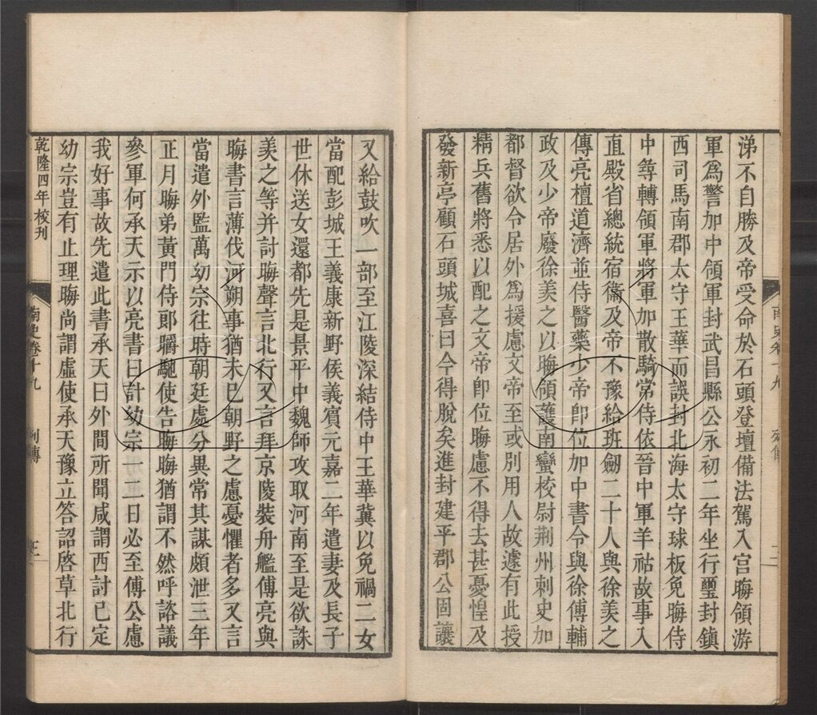 涕不自勝及帝受命於石頭登壇備法駕入宮晦領游
軍爲警加中領軍封武昌縣公永初二年坐行璽封鎮
西司馬南郡太守王華而誤封北海太守球板免晦侍
中尋轉領軍將軍加散騎常侍依晉中軍羊祜故事入
直殿省總統宿衞及帝不豫給班劒二十人與徐羨之
傅亮檀道濟並侍醫藥少帝卽位加中書令與徐傅輔
政及少帝廢徐羨之以晦領護南蠻校尉荆州刺史加
都督欲令居外爲援慮文帝至或別用人故遽有此授
精兵舊將悉以配之文帝卽位晦慮不得去甚憂惶及
發新亭顧石頭城喜曰今得脫矣進封建平郡公固讓
南史卷十九 列傳
又給鼓吹一部至江陵深結侍中王華冀以免禍二女
當配彭城王義康新野侯義賓元嘉二年遣妻及長子
世休送女還都先是景平中魏師攻取河南至是欲誅
羨之等并討晦聲言北行又言拜京陵裝舟艦傅亮與
晦書言薄伐河朔事猶未已朝野之慮憂懼者多又言
當遣外監萬幼宗往時朝廷處分異常其謀頗泄三年
正月晦弟黃門侍郎㬭馳使告晦晦猶謂不然呼諮議
參軍何承天示以亮書曰計幼宗一二日必至傅公慮
我好事故先遣此書承天曰外間所聞咸謂西討已定
幼宗豈有止理晦尚謂虛使承天豫立答詔啓草北行
乾隆四年校刊
南史卷十九 列傳